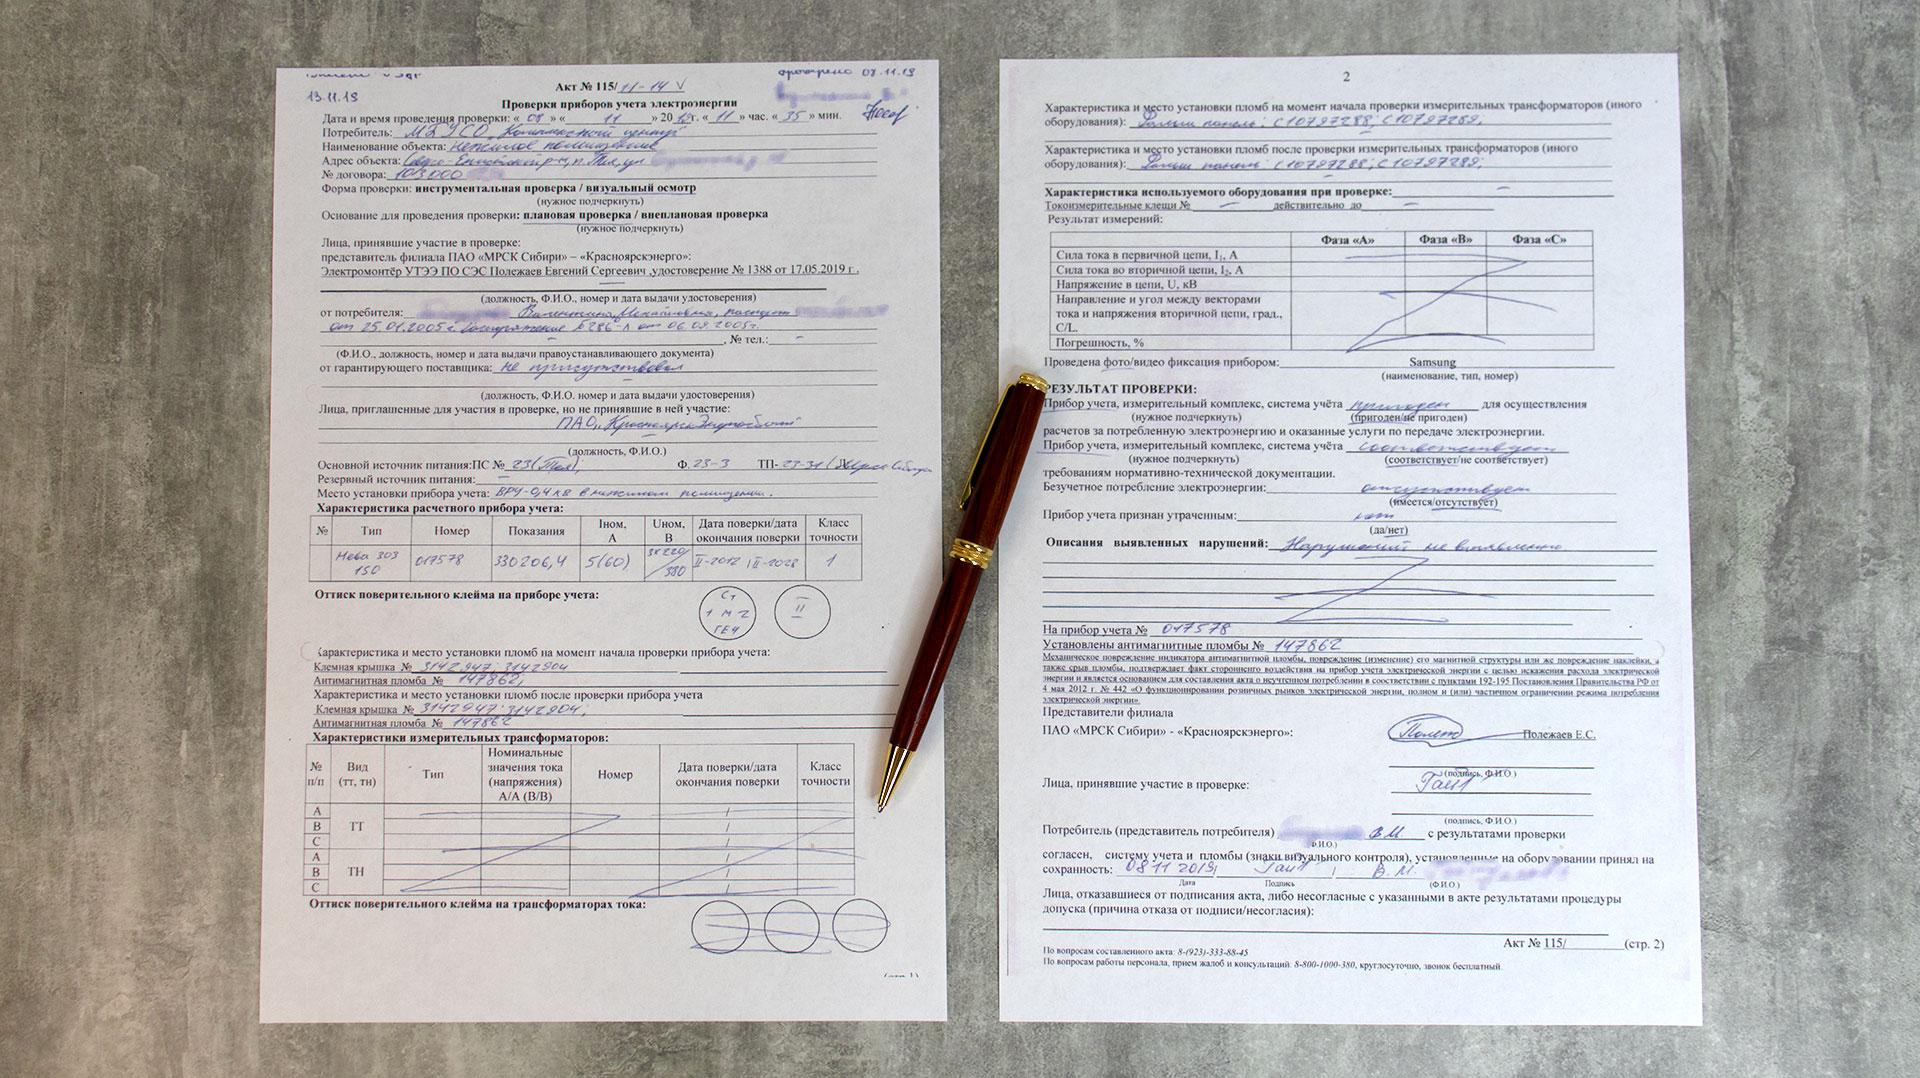 13.11.19
проверено 08.11.19
Акт № 115/11-14
Проверки приборов учета электроэнергии
Дата и время проведения проверки: « 08 » « 11 » 2019г. « 11 » час. « 35 » мин.
Потребитель: МБУСО „Комплексный центр"
Наименование объекта: нежилое помещение
Адрес объекта:
№ договора: 103000
Форма проверки: инструментальная проверка / визуальный осмотр
(нужное подчеркнуть)
Основание для проведения проверки: плановая проверка / внеплановая проверка
(нужное подчеркнуть)
Лица, принявшие участие в проверке:
представитель филиала ПАО «МРСК Сибири» – «Красноярскэнерго»:
Электромонтёр УТЭЭ ПО СЭС Полежаев Евгений Сергеевич ,удостоверение № 1388 от 17.05.2019 г .
(должность, Ф.И.О., номер и дата выдачи удостоверения)
от потребителя: Валентина Михайловна, паспорт
от 25.01.2005г. Распоряжение №286-Л от 06.09.2005г.
, № тел.: -
(Ф.И.О., должность, номер и дата выдачи правоустанавливающего документа)
от гарантирующего поставщика: не присутствовал
(должность, Ф.И.О. номер и дата выдачи удостоверения)
Лица, приглашенные для участия в проверке, но не принявшие в ней участие:
ПАО „Красноярскэнергосбыт"
(должность, Ф.И.О.)
Основной источник питания:ПС № 23(Тея), Ф. 23-3 ТП- 23-31
Резервный источник питания: –
Место установки прибора учета: ВРУ-0,4кВ в нежилом помещении.
Характеристика расчетного прибора учета:
№ Тип Номер Показания Iном, А Uном, В Дата поверки/дата окончания поверки Класс точности
Нева 303 150 017578 330206,4 5(60) 3х220/380 II-2012 II-2028 1
Оттиск поверительного клейма на приборе учета: Ст 1 М 2 ГЕЧ II
Характеристика и место установки пломб на момент начала проверки прибора учета:
Клемная крышка № 3142947; 3142904
Антимагнитная пломба № 147862;
Характеристика и место установки пломб после проверки прибора учета
Клемная крышка № 3142947; 3142904;
Антимагнитная пломба № 147862
Характеристики измерительных трансформаторов:
№ п/п Вид (тт, тн) Тип Номинальные значения тока (напряжения) А/А (В/В) Номер Дата поверки/дата окончания поверки Класс точности
А
В ТТ
С
А
В ТН
С
Оттиск поверительного клейма на трансформаторах тока:
2
Характеристика и место установки пломб на момент начала проверки измерительных трансформаторов (иного
оборудования): Фальш панель: С10797288; С10797289;
Характеристика и место установки пломб после проверки измерительных трансформаторов (иного
оборудования): Фальш панель: С10797288; С10797289;
Характеристика используемого оборудования при проверке: –
Токоизмерительные клещи № – действительно до –
Результат измерений:
Фаза «А» Фаза «В» Фаза «С»
Сила тока в первичной цепи, I₁, А
Сила тока во вторичной цепи, I₂, А
Напряжение в цепи, U, кВ
Направление и угол между векторами
тока и напряжения вторичной цепи, град.,
C/L.
Погрешность, %
Проведена фото/видео фиксация прибором: Samsung
(наименование, тип, номер)
РЕЗУЛЬТАТ ПРОВЕРКИ:
Прибор учета, измерительный комплекс, система учёта пригоден для осуществления
(нужное подчеркнуть) (пригоден/не пригоден)
расчетов за потребленную электроэнергию и оказанные услуги по передаче электроэнергии.
Прибор учета, измерительный комплекс, система учёта соответствует
(нужное подчеркнуть) (соответствует/не соответствует)
требованиям нормативно-технической документации.
Безучетное потребление электроэнергии: отсутствует
(имеется/отсутствует)
Прибор учета признан утраченным: нет
(да/нет)
Описания выявленных нарушений: Нарушений не выявлено
На прибор учета № 017578
Установлены антимагнитные пломбы № 147862
Механическое повреждение индикатора антимагнитной пломбы, повреждение (изменение) его магнитной структуры или же повреждение наклейки, а
также срыв пломбы, подтверждает факт стороннего воздействия на прибор учета электрической энергии с целью искажения расхода электрической
энергии и является основанием для составления акта о неучтенном потреблении в соответствии с пунктами 192-195 Постановления Правительства РФ от
4 мая 2012 г. № 442 «О функционировании розничных рынков электрической энергии, полном и (или) частичном ограничении режима потребления
электрической энергии»
Представители филиала
ПАО «МРСК Сибири» - «Красноярскэнерго»: Полежаев Е.С.
(подпись, Ф.И.О.)
Лица, принявшие участие в проверке:
(подпись, Ф.И.О.)
Потребитель (представитель потребителя) В.М. с результатами проверки
Ф.И.О.)
согласен, систему учета и пломбы (знаки визуального контроля), установленные на оборудовании принял на
сохранность: 08 11 2019, В. М.
Дата Подпись (Ф.И.О.)
Лица, отказавшиеся от подписания акта, либо несогласные с указанными в акте результатами процедуры
допуска (причина отказа от подписи/несогласия):
Акт № 115/ (стр. 2)
По вопросам составленного акта: 8-(923)-333-88-45
По вопросам работы персонала, прием жалоб и консультаций: 8-800-1000-380, круглосуточно, звонок бесплатный.